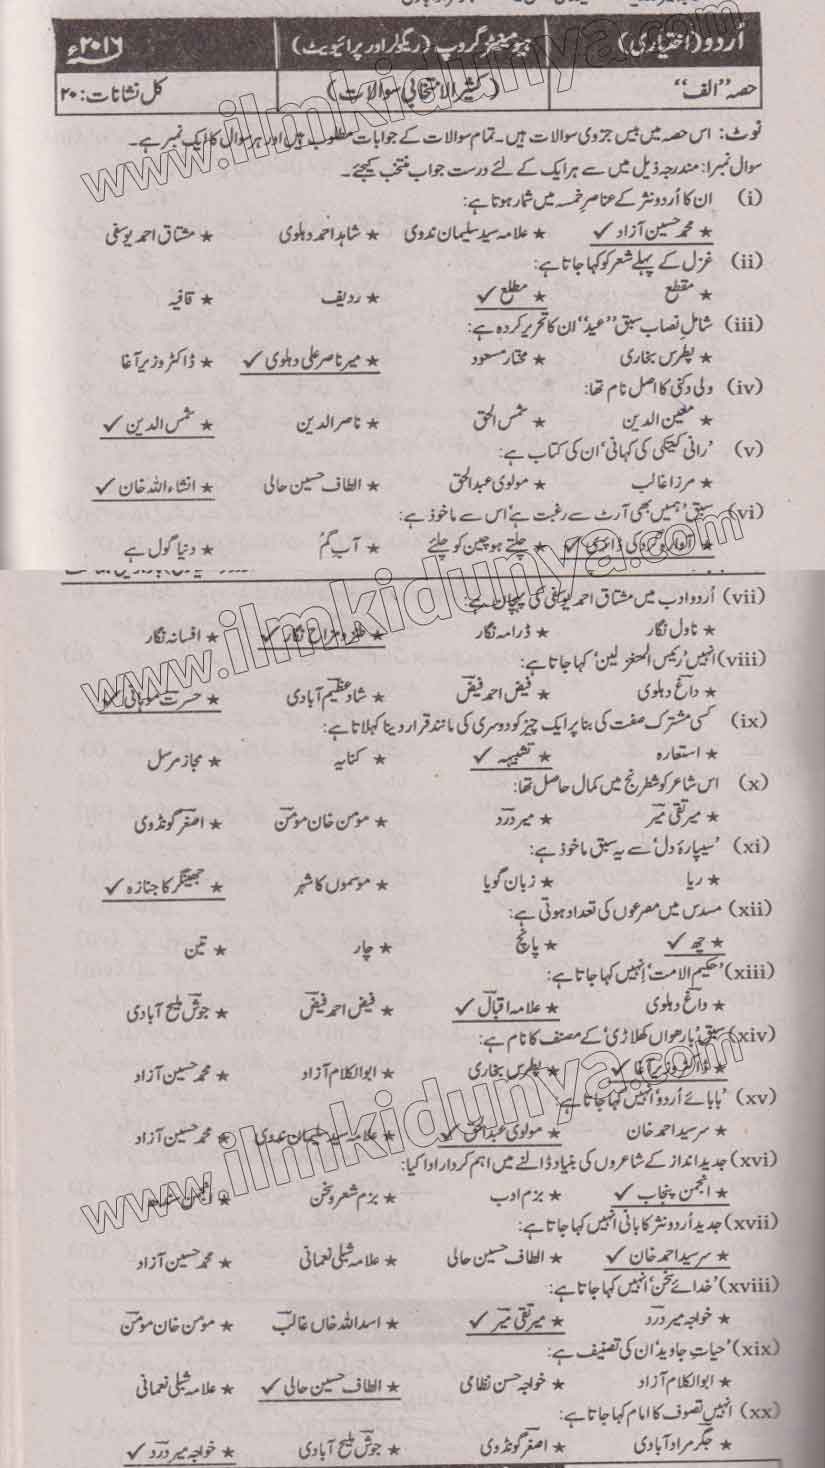 اُردو (اختیاری) ہیومینٹیز گروپ (ریگولر اور پرائیویٹ) ۲۰۱۶ء
حصہ "الف" (کثیر الانتخابی سوالات) کل نشانات: ۲۰
نوٹ: اس حصہ میں بیس جزوی سوالات ہیں۔ تمام سوالات کے جوابات مطلوب ہیں اور ہر سوال کا ایک نمبر ہے۔
سوال نمبر۱: مندرجہ ذیل میں سے ہر ایک کے لئے درست جواب منتخب کیجئے۔
(i) ان کا اُردو نثر کے عناصرِ خمسہ میں شمار ہوتا ہے:
★ محمد حسین آزاد ✓ ★ علامہ سید سلیمان ندوی ★ شاہد احمد دہلوی ★ مشتاق احمد یوسفی
(ii) غزل کے پہلے شعر کو کہا جاتا ہے:
★ مقطع ★ مطلع ✓ ★ ردیف ★ قافیہ
(iii) شاملِ نصاب سبق "عید" ان کا تحریر کردہ ہے:
★ پطرس بخاری ★ مختار مسعود ★ میر ناصر علی دہلوی ✓ ★ ڈاکٹر وزیر آغا
(iv) ولی دکنی کا اصل نام تھا:
★ معین الدین ★ شمس الحق ★ ناصر الدین ★ شمس الدین ✓
(v) 'رانی کیتکی کی کہانی' ان کی کتاب ہے:
★ مرزا غالب ★ مولوی عبدالحق ★ الطاف حسین حالی ★ انشاء اللہ خان ✓
(vi) سبق 'ہمیں بھی آرٹ سے رغبت ہے' اس سے ماخوذ ہے:
★ آوارہ گرد کی ڈائری ✓ ★ چلتے ہو چین کو چلئے ★ آبِ گم ★ دنیا گول ہے
(vii) اُردو ادب میں مشتاق احمد یوسفی کی پہچان ہے:
★ ناول نگار ★ ڈرامہ نگار ★ طنز و مزاح نگار ✓ ★ افسانہ نگار
(viii) انہیں 'رئیس المتغزلین' کہا جاتا ہے:
★ داغ دہلوی ★ فیض احمد فیض ★ شاد عظیم آبادی ★ حسرت موہانی ✓
(ix) کسی مشترک صفت کی بنا پر ایک چیز کو دوسری کی مانند قرار دینا کہلاتا ہے:
★ استعارہ ★ تشبیہہ ✓ ★ کنایہ ★ مجاز مرسل
(x) اس شاعر کو شطرنج میں کمال حاصل تھا:
★ میر تقی میر ★ میر درد ★ مومن خان مومن ★ اصغر گونڈوی
(xi) 'سیپارۂ دل' سے یہ سبق ماخوذ ہے:
★ ریا ★ زبان گویا ★ موسموں کا شہر ★ جھینگر کا جنازہ ✓
(xii) مسدس میں مصرعوں کی تعداد ہوتی ہے:
★ چھ ✓ ★ پانچ ★ چار ★ تین
(xiii) 'حکیم الامت' انہیں کہا جاتا ہے:
★ داغ دہلوی ★ علامہ اقبال ✓ ★ فیض احمد فیض ★ جوش ملیح آبادی
(xiv) سبق 'بارھواں کھلاڑی' کے مصنف کا نام ہے:
★ ڈاکٹر وزیر آغا ✓ ★ پطرس بخاری ★ ابوالکلام آزاد ★ محمد حسین آزاد
(xv) 'بابائے اُردو' انہیں کہا جاتا ہے:
★ سر سید احمد خان ★ مولوی عبدالحق ✓ ★ علامہ سید سلیمان ندوی ★ محمد حسین آزاد
(xvi) جدید انداز کے شاعروں کی بنیاد ڈالنے میں اہم کردار ادا کیا:
★ انجمن پنجاب ✓ ★ بزم ادب ★ بزم شعر و سخن ★ انجمن
(xvii) جدید اُردو نثر کا بانی انہیں کہا جاتا ہے:
★ سر سید احمد خان ✓ ★ الطاف حسین حالی ★ علامہ شبلی نعمانی ★ محمد حسین آزاد
(xviii) 'خدائے سخن' انہیں کہا جاتا ہے:
★ خواجہ میر درد ★ میر تقی میر ✓ ★ اسد اللہ خاں غالب ★ مومن خان مومن
(xix) 'حیاتِ جاوید' ان کی تصنیف ہے:
★ ابوالکلام آزاد ★ خواجہ حسن نظامی ★ الطاف حسین حالی ✓ ★ علامہ شبلی نعمانی
(xx) انہیں تصوف کا امام کہا جاتا ہے:
★ جگر مراد آبادی ★ اصغر گونڈوی ★ جوش ملیح آبادی ★ خواجہ میر درد ✓
www.ilmkidunya.com
www.ilmkidunya.com
www.ilmkidunya.com